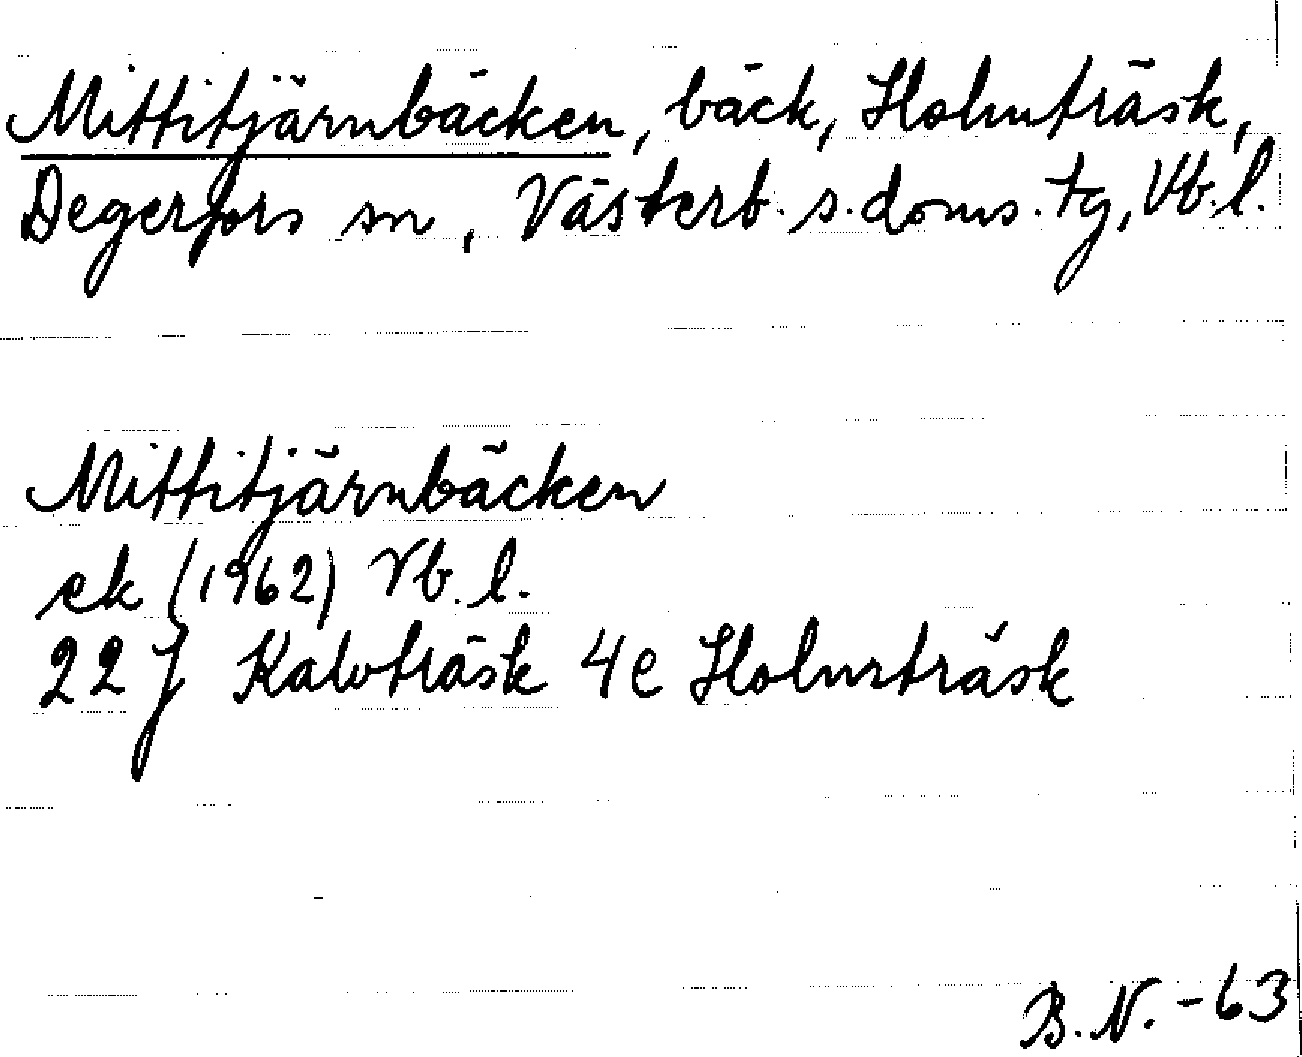 Mittitjärnbäcken, bäck, Holmträsk,
Degerfors sn, Västerb. s. doms. tg, Vb. l.
Mittitjärnbäcken
ek (1962) Vb. l.
22 J Kalvträsk 4e Holmträsk
B. N. - 63